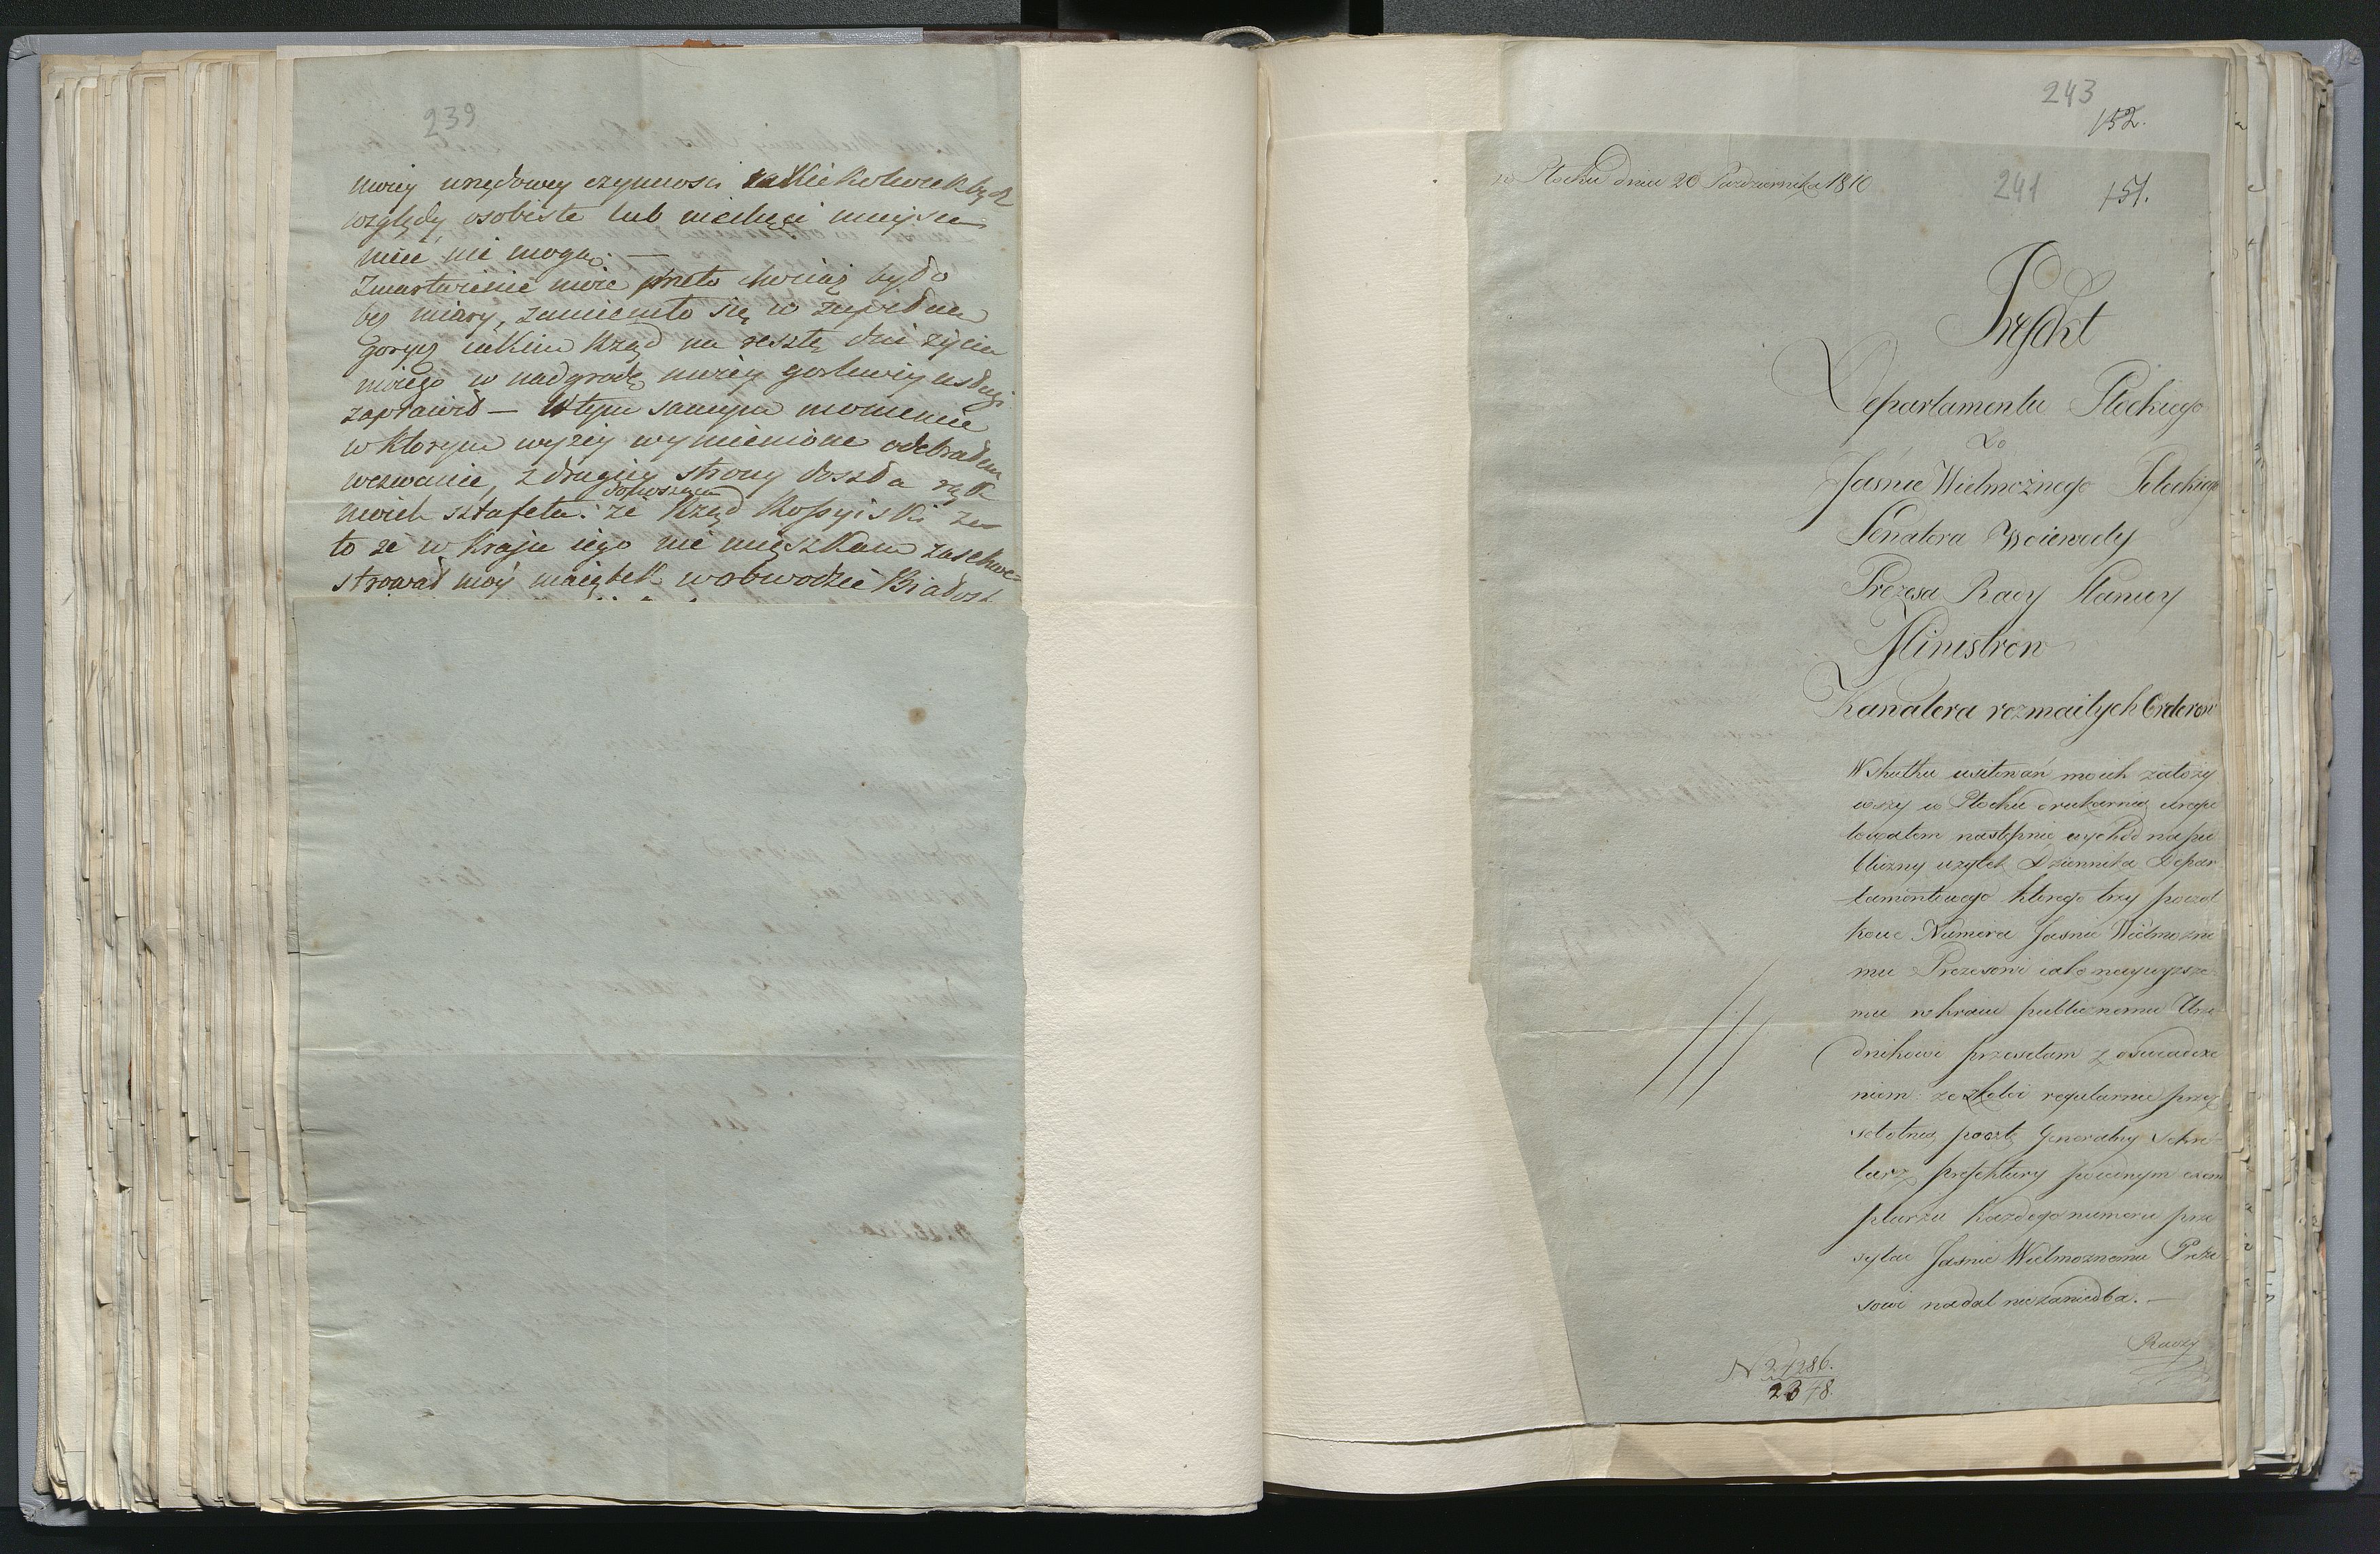 239
moiey urzędowey czynnosci iakiekolwiekbądz
względy osobiste lub niechęci mieysca
mieć nie mogą. —
Zmartwienie moie przeto chociaż było
bez miary, zamieniło się w
gorycz iakim Rząd na resztę dni życia
moiego w nadgrodę moiey gorliwey usługi
zaprawił — W tym samym momencie
w ktorym wyżey wymienione odebrałem
wezwanie, z drugiey strony doszła rąk
donosząca
moich sztafeta: że Rząd Rossyiski za
to że w kraju iego nie mieszkam zasekwe-
strował moy maiątek w obwodzie Białost
243
152.
w Płocku dnia 20 Pazdziernika 1810
241
151.
Prefekt
Departamentu Płockiego
Do
Jaśnie Wielmożnego Potockiego
Senatora Woiewody
Prezesa Rady Stanu y
Ministrow
Kawalera rozmaitych Orderow
W skutku usiłowań moich założy
wszy w Płocku drukarnią uregu
lowałem następnie wychod na pu
bliczny użytek Dziennika Depar
tamentowego ktorego trzy począt
kowe Numera Jasnie Wielmożne
mu Prezesowi iako naywyższe
mu w kraiu publicznemu Urzę
dnikowi przesełam z oswiadcze
niem: że z kolei regularnie przez
sobotnią pocztę Generalny Sekre-
tarz prefektury po iednym exem
plarzu każdego numeru prze
syłac Jasnie Wielmożnemu Preze
sowi nadal nie zaniedba. —
N 24286.
2348.